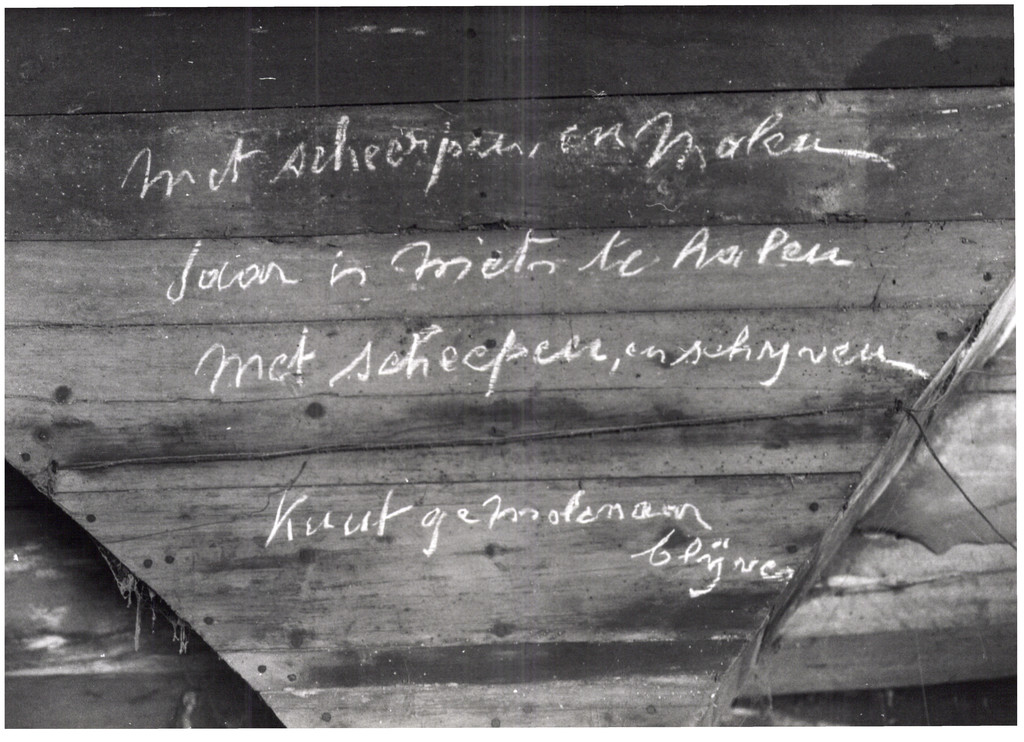 met scheerpen, en malen
daar is niets te halen
met scheepen, en schryven
Kunt ge molenaar
blijven